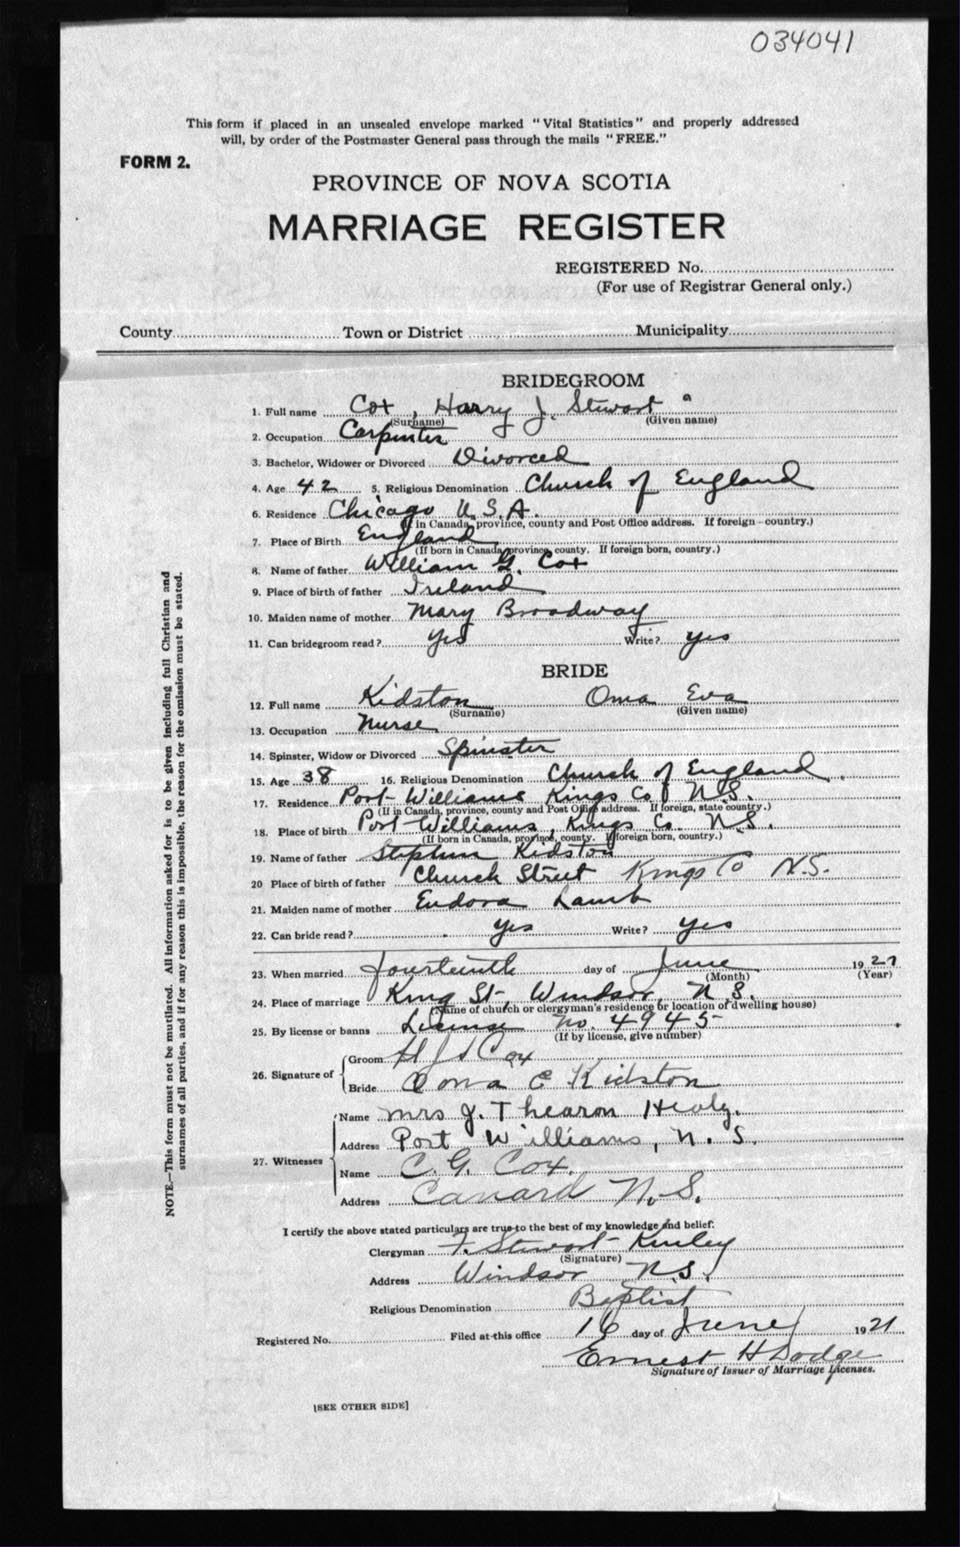 034041
This form if placed in an unsealed envelope marked "Vital Statistics" and properly addressed
will, by order of the Postmaster General pass through the mails "FREE."
FORM 2.
PROVINCE OF NOVA SCOTIA
MARRIAGE REGISTER
REGISTERED No.
(For use of Registrar General only.)
County Town or District Municipality
BRIDEGROOM
1. Full name Cox, Harry J. Stewart
(Surname) (Given name)
2. Occupation Carpenter
3. Bachelor, Widower or Divorced Divorced
4. Age 42 5. Religious Denomination Church of England
6. Residence Chicago U.S.A.
(If in Canada, province, county and Post Office address. If foreign country.)
7. Place of Birth England
(If born in Canada, province, county. If foreign born, country.)
8. Name of father William G. Cox
9. Place of birth of father Ireland
10. Maiden name of mother Mary Broadway
11. Can bridegroom read? Yes Write? Yes
BRIDE
12. Full name Kidston Oma Eva
(Surname) (Given name)
13. Occupation Nurse
14. Spinster, Widow or Divorced Spinster
15. Age 38 16. Religious Denomination Church of England.
17. Residence Port Williams Kings Co N.S.
(If in Canada, province, county and Post Office address. If foreign, state country.)
18. Place of birth Port Williams, Kings Co. N.S.
(If born in Canada, province, county. If foreign born, country.)
19. Name of father Stephen Kidston
20 Place of birth of father Church Street Kings Co N.S.
21. Maiden name of mother Eudora Lamb
22. Can bride read? Yes Write? Yes
23. When married fourteenth day of June 19
(Month) (Year)
24. Place of marriage King St, Windsor, N.S.
(Name of church or clergyman's residence or location of dwelling house)
25. By license or banns License No. 4945
(If by license, give number)
26. Signature of Groom H J S Cox
Bride Oma E Kidston
27. Witnesses Name Mrs J. Thearon Healy.
Address Port Williams, N.S.
Name C. G. Cox.
Address Canard N.S.
I certify the above stated particulars are true to the best of my knowledge and belief:
Clergyman F. Stewart Kinley
(Signature)
Address Windsor N.S.
Religious Denomination Baptist
Registered No. Filed at this office 16 day of June 1921
Ernest H Dodge
Signature of Issuer of Marriage Licenses.
[SEE OTHER SIDE]
NOTE.—This form must not be mutilated. All information asked for is to be given including full Christian and
surnames of all parties, and if for any reason this is impossible, the reason for the omission must be stated.